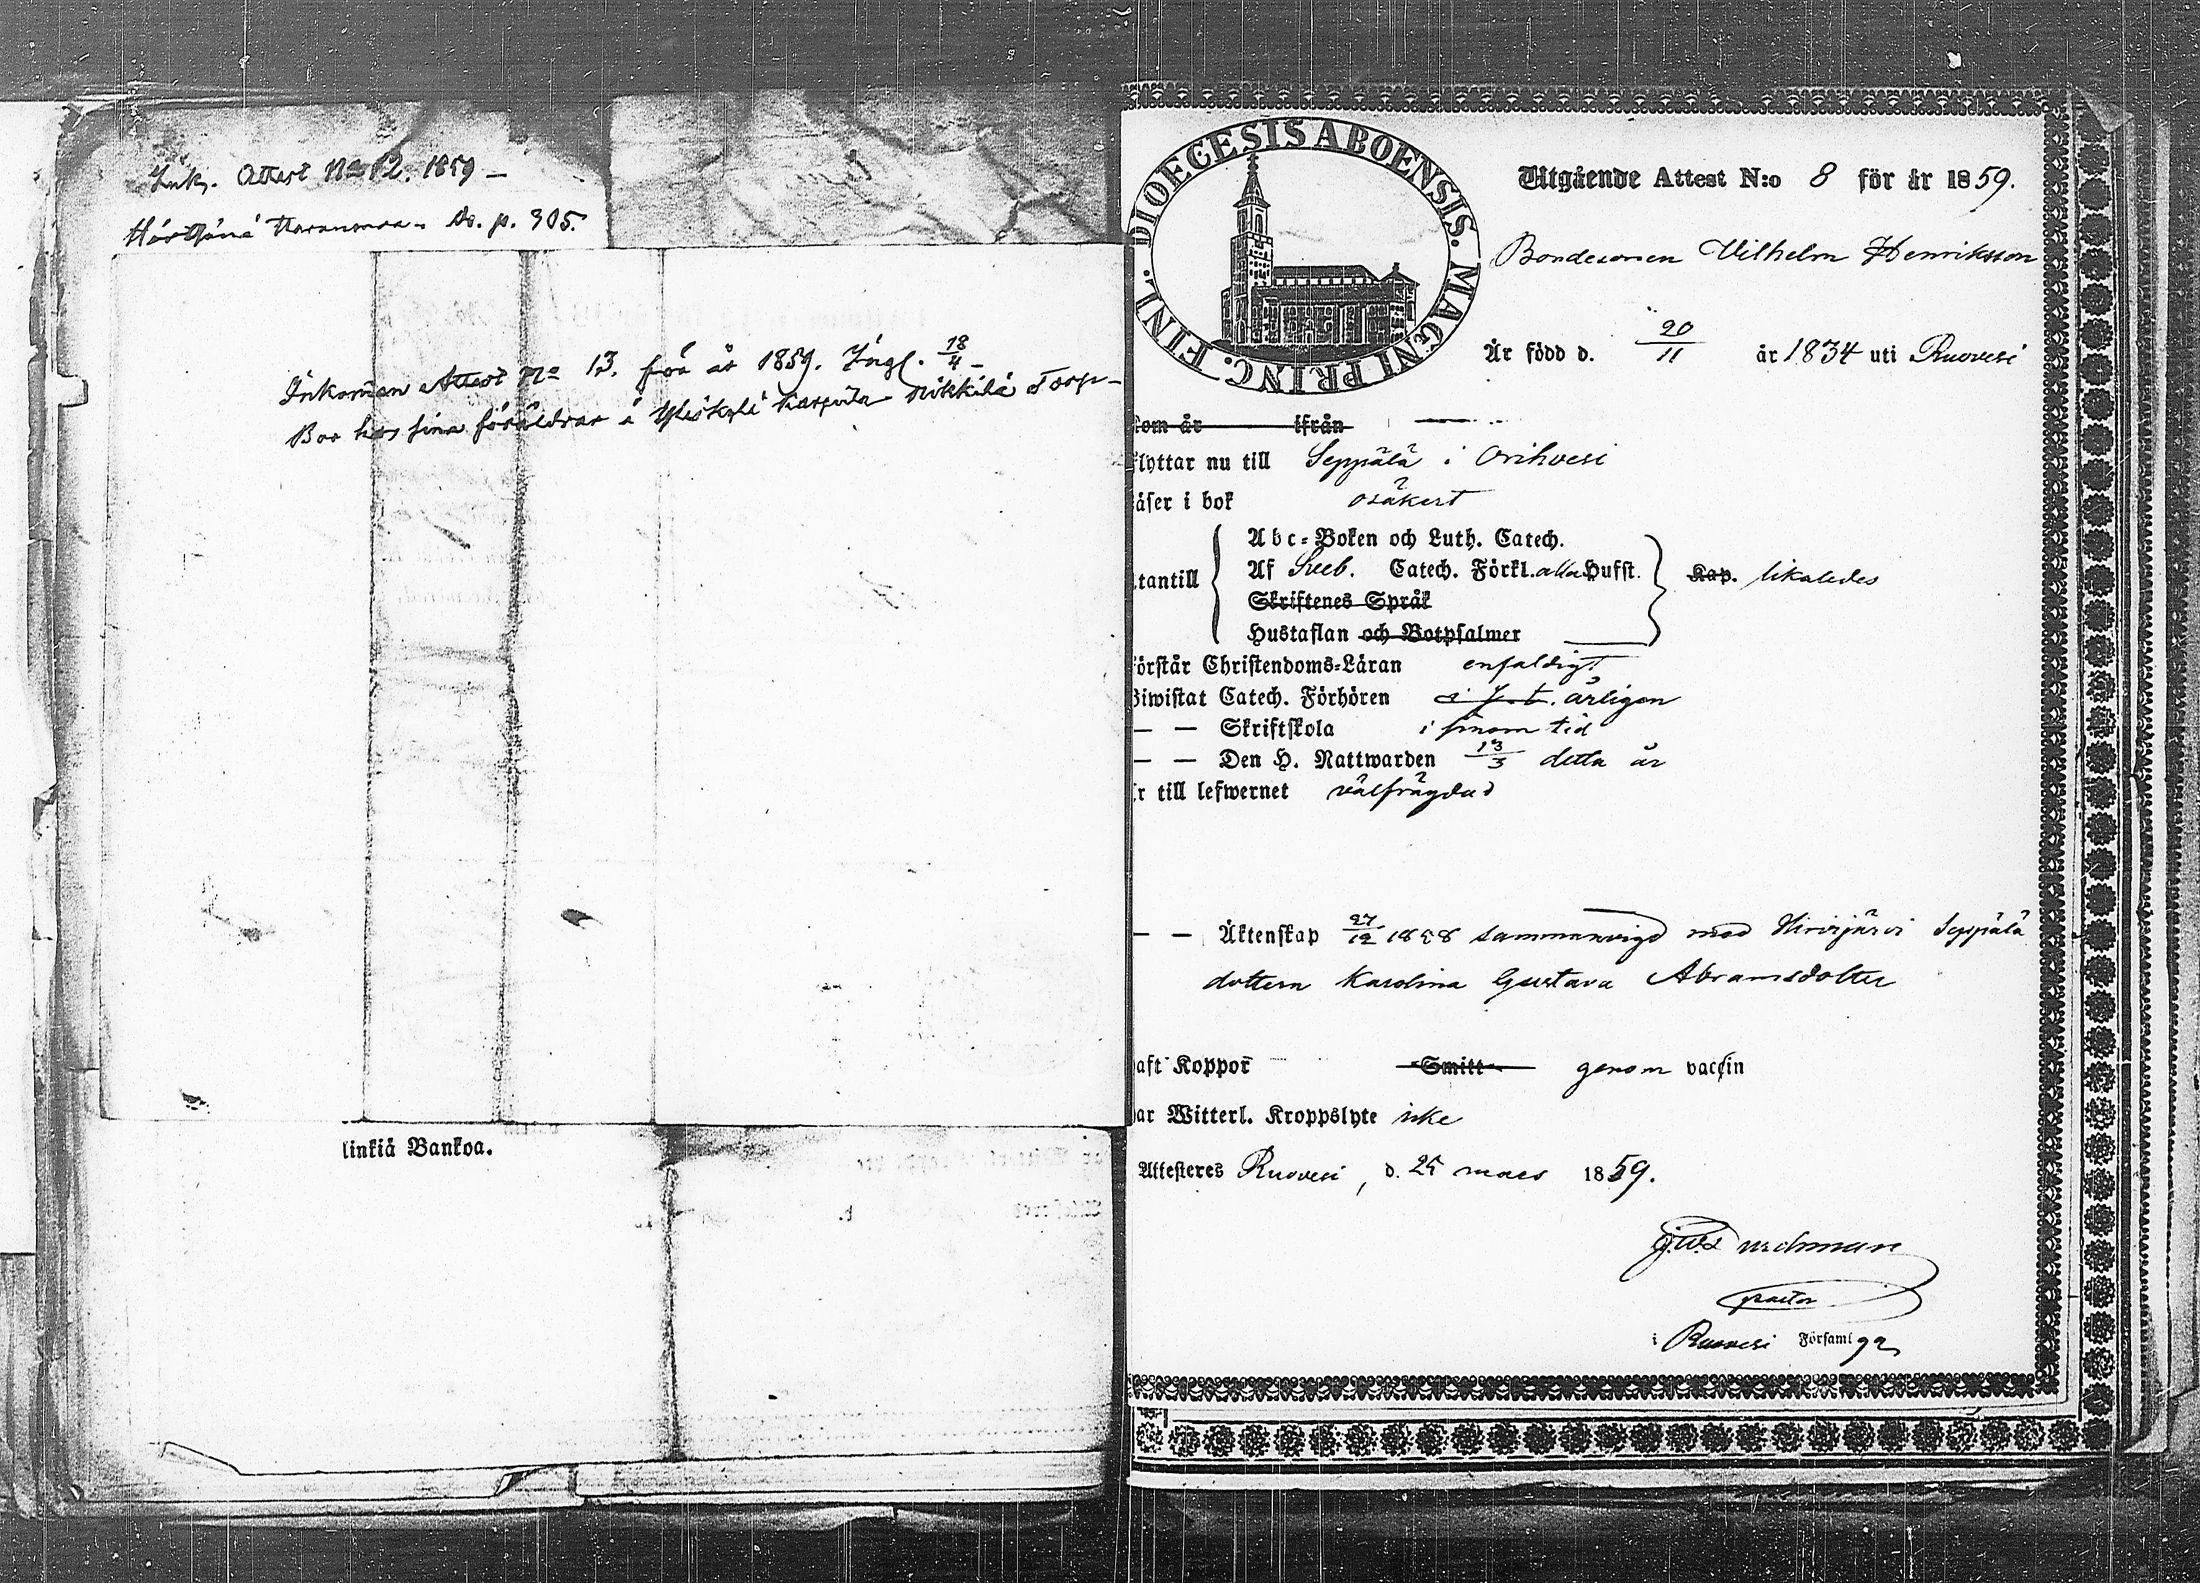 Ink. Attest No 12. 1859 –
p. 305.
Inkom̄en Attest No 13. från år 1859. Ingl. 18/4 –
Bor hos sina föräldrar å Yliskylä Nikkilä Torp –
linkiä Bankoa.
DIOECESIS ABOENSIS. MAGNI PRINC. FINL.
Utgående Attest N:o 8 för år 1859.
Bondesonen Vilhelm Henriksson
Är född d. 20/11 år 1834 uti Ruovesi
kom år ifrån
flyttar nu till Seppälä i Orihvesi
läser i bok osäkert
Abc-Boken och Luth. Catech.
utantill Af Sveb. Catech. Förkl. alla Hufst. Kap. likaledes
Skriftenes Språk
Hustaflan och Botpsalmer
förstår Christendoms-Läran enfaldigt
Biwistat Catech. Förhören årligen
— — Skriftskola i sinom tid
— — Den H. Nattwarden 13/3 detta år
Är till lefwernet välfrägdad
— — Äktenskap 27/12 1858 sammanvigd med Hirvijärvi Seppälä
dottern Karolina Gustava Abramsdotter
haft Koppor Smitt genom vaccin
har Witterl. Kroppslyte icke
Attesteres Ruovesi, d. 25 mars 1859.
pastor
i Ruovesi Församl